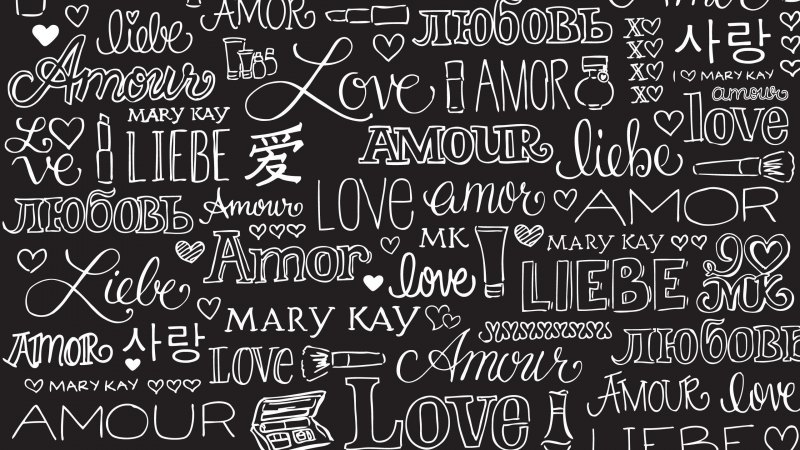 liebe
AMOR
ЛЮБОВЬ
X♡
X♡
X♡
X♡
사랑
I ♡ MARY KAY
Amour
Love
AMOR
amour
love
MARY KAY
Love
LIEBE
爱
AMOUR
liebe
ЛЮБОВЬ
Amour
LOVE
amor
AMOR
Amor
MK
MARY KAY
Liebe
love
LIEBE
MK
MARY KAY
AMOR
사랑
LOVE
Amour
ЛЮБОВЬ
MARY KAY
AMOUR
Love
AMOUR
love
LIEBE